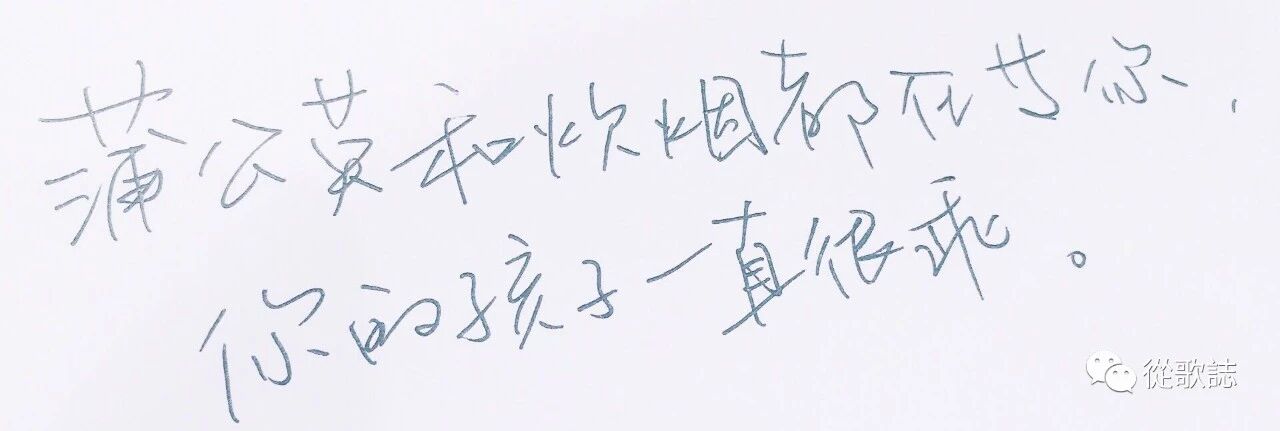 蒲公英和炊烟都在等你，
你的孩子一直很乖。
從歌誌